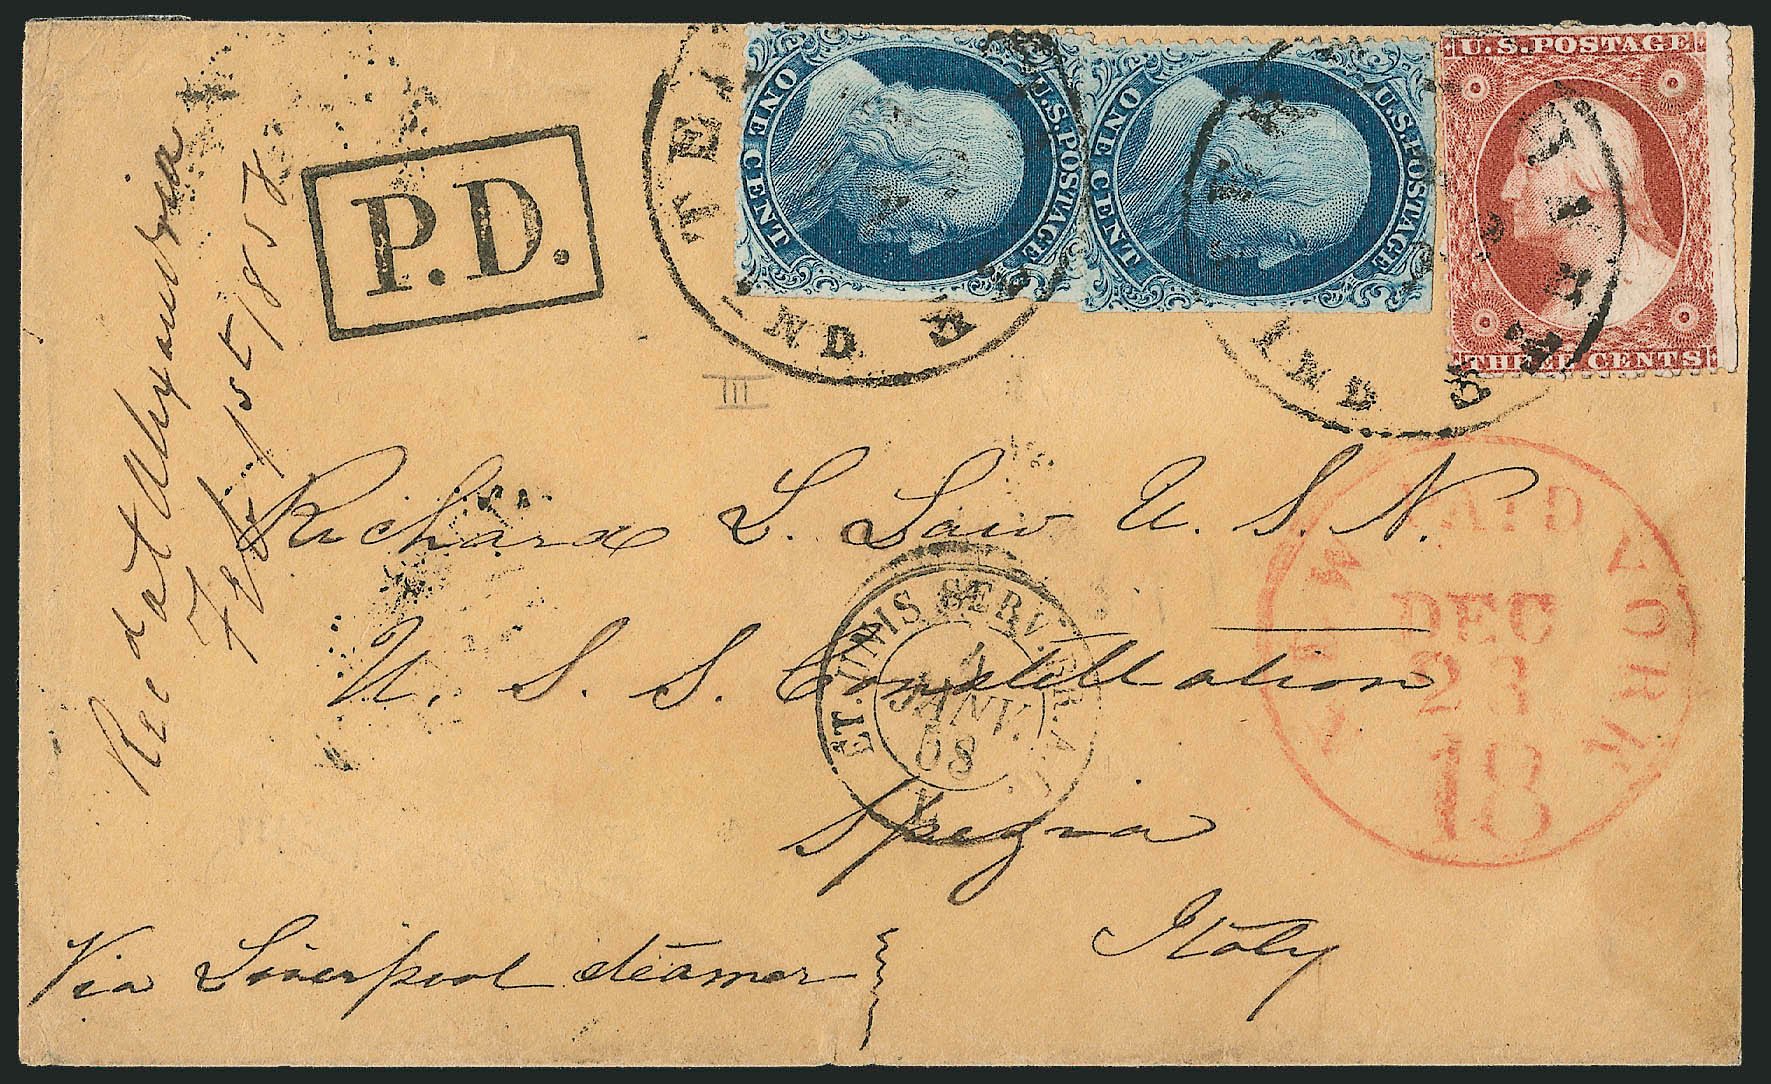 Rec d at Alexandria
Feb 1st / 1858
P.D.
U.S. POSTAGE
ONE CENT
U.S. POSTAGE
ONE CENT
U.S. POSTAGE
THREE CENTS
IND
IND
III
Richard L. Law U. S. N.
U. S. S. Constellation
Spezia
Italy
Via Liverpool steamer
ET. UNIS SERV. BR. A.
4
JANV.
58
NEW YORK
PAID
DEC
23
18